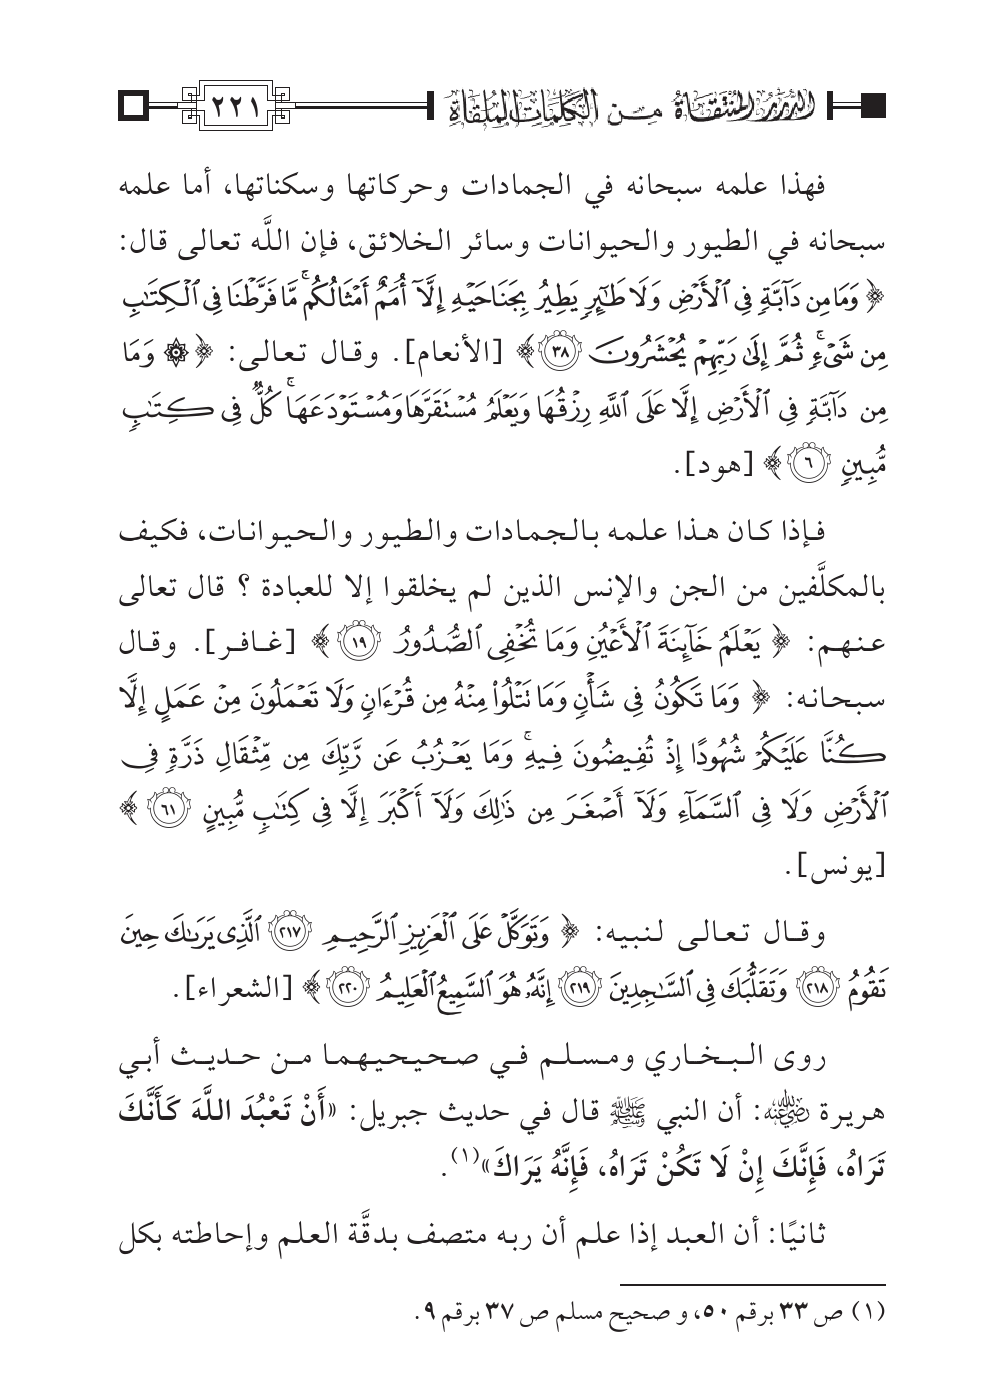 الدرر المنتقاة من الكلمات الملقاة ٢٢١
فهذا علمه سبحانه في الجمادات وحركاتها وسكناتها، أما علمه
سبحانه في الطيور والحيوانات وسائر الخلائق، فإن اللَّه تعالى قال:
﴿ وَمَا مِن دَآبَّةٍ فِى ٱلْأَرْضِ وَلَا طَٰٓئِرٍ يَطِيرُ بِجَنَاحَيْهِ إِلَّآ أُمَمٌ أَمْثَالُكُم ۚ مَّا فَرَّطْنَا فِى ٱلْكِتَٰبِ
مِن شَىْءٍ ۚ ثُمَّ إِلَىٰ رَبِّهِمْ يُحْشَرُونَ ٣٨﴾ [الأنعام]. وقال تعالى: ﴿ ۞ وَمَا
مِن دَآبَّةٍ فِى ٱلْأَرْضِ إِلَّا عَلَى ٱللَّهِ رِزْقُهَا وَيَعْلَمُ مُسْتَقَرَّهَا وَمُسْتَوْدَعَهَا ۚ كُلٌّ فِى كِتَٰبٍ
مُّبِينٍ ٦ ﴾ [هود].
فإذا كان هذا علمه بالجمادات والطيور والحيوانات، فكيف
بالمكلَّفين من الجن والإنس الذين لم يخلقوا إلا للعبادة ؟ قال تعالى
عنهم: ﴿ يَعْلَمُ خَآئِنَةَ ٱلْأَعْيُنِ وَمَا تُخْفِى ٱلصُّدُورُ ١٩ ﴾ [غافر]. وقال
سبحانه: ﴿ وَمَا تَكُونُ فِى شَأْنٍ وَمَا تَتْلُوا۟ مِنْهُ مِن قُرْءَانٍ وَلَا تَعْمَلُونَ مِنْ عَمَلٍ إِلَّا
كُنَّا عَلَيْكُمْ شُهُودًا إِذْ تُفِيضُونَ فِيهِ ۚ وَمَا يَعْزُبُ عَن رَّبِّكَ مِن مِّثْقَالِ ذَرَّةٍ فِى
ٱلْأَرْضِ وَلَا فِى ٱلسَّمَآءِ وَلَآ أَصْغَرَ مِن ذَٰلِكَ وَلَآ أَكْبَرَ إِلَّا فِى كِتَٰبٍ مُّبِينٍ ٦١ ﴾
[يونس].
وقال تعالى لنبيه: ﴿ وَتَوَكَّلْ عَلَى ٱلْعَزِيزِ ٱلرَّحِيمِ ٢١٧ ٱلَّذِى يَرَىٰكَ حِينَ
تَقُومُ ٢١٨ وَتَقَلُّبَكَ فِى ٱلسَّٰجِدِينَ ٢١٩ إِنَّهُۥ هُوَ ٱلسَّمِيعُ ٱلْعَلِيمُ ٢٢٠ ﴾ [الشعراء].
روى البخاري ومسلم في صحيحيهما من حديث أبي
هريرة رضي الله عنه: أن النبي ﷺ قال في حديث جبريل: «أَنْ تَعْبُدَ اللهَ كَأَنَّكَ
تَرَاهُ، فَإِنَّكَ إِنْ لَا تَكُنْ تَرَاهُ، فَإِنَّهُ يَرَاكَ»(١).
ثانيًا: أن العبد إذا علم أن ربه متصف بدقَّة العلم وإحاطته بكل
(١) ص ٣٣ برقم ٥٠، و صحيح مسلم ص ٣٧ برقم ٩.